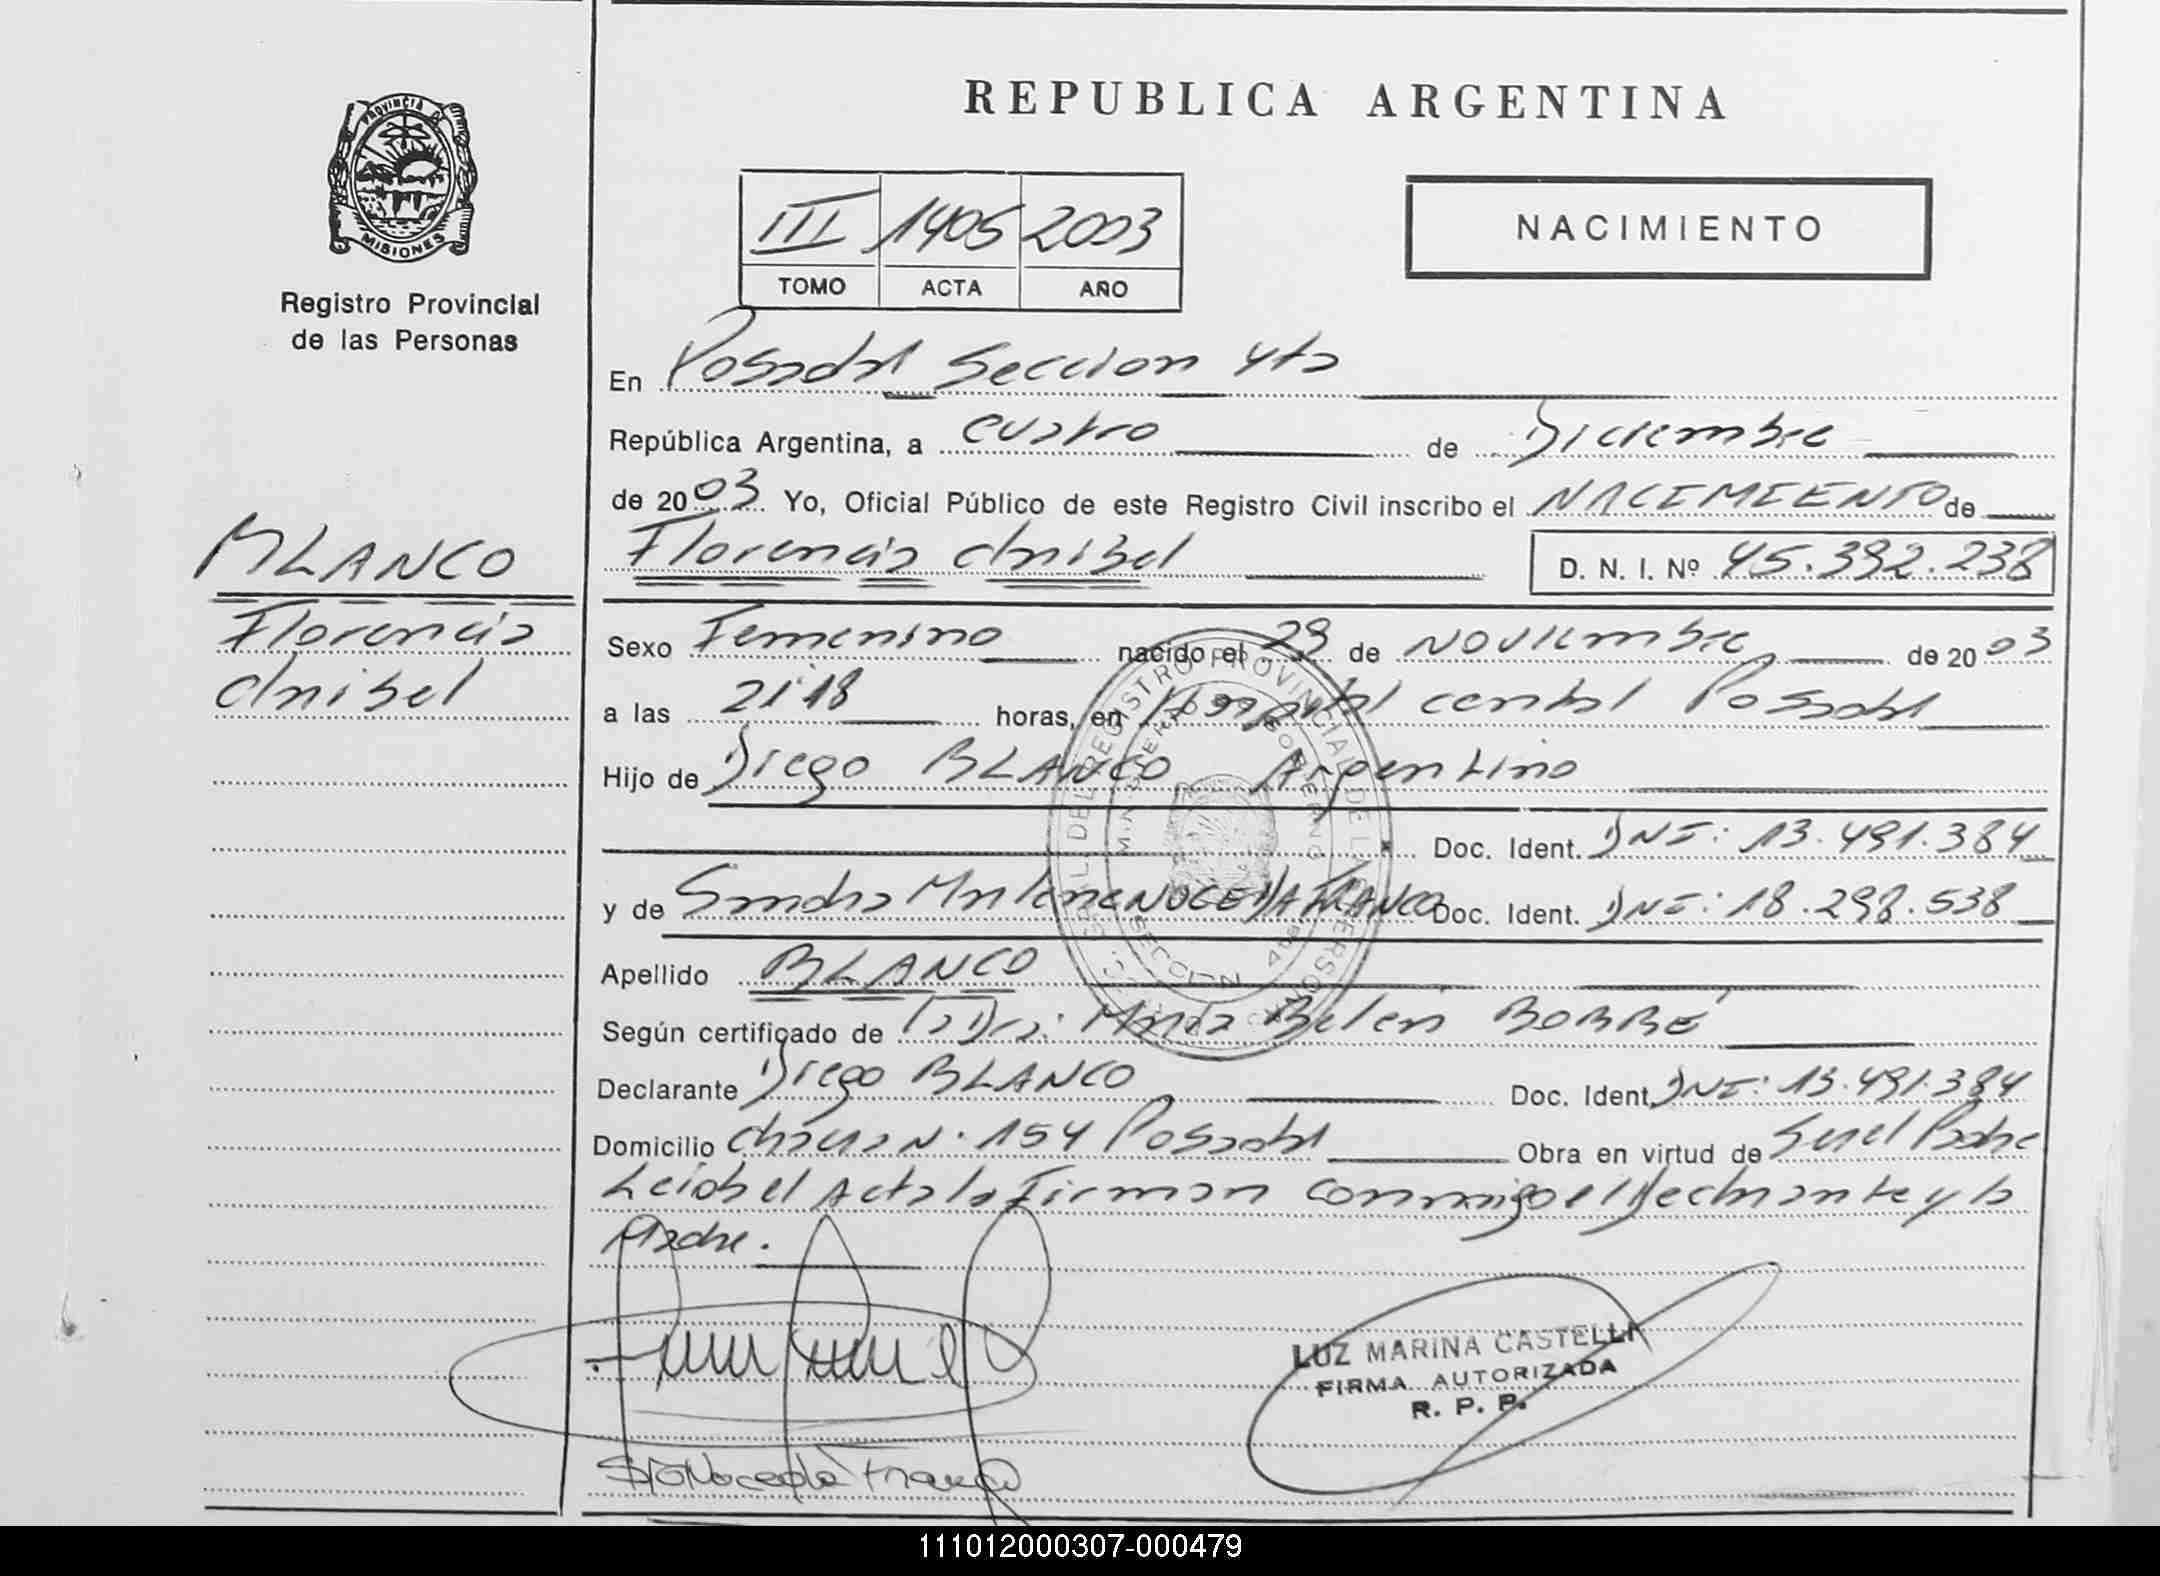 PROVINCIA D
MISIONES
Registro Provincial
de las Personas
REPUBLICA ARGENTINA
III 1405 2003
TOMO ACTA AÑO
NACIMIENTO
En Posadas Seccion 4ta
República Argentina, a cuatro de Diciembre
de 2003 Yo, Oficial Público de este Registro Civil inscribo el NACIMIENTO de
Florencia Anibel D. N. I. Nº 45.392.238
BLANCO
Florencia
Anibel
Sexo Femenino nacido el 29 de Noviembre de 2003
a las 21:18 horas, en Hospital central Posadas
Hijo de Diego BLANCO Argentino
Doc. Ident. DNI: 13.491.384
y de Sandra Marlene NOCEDA FRANCO Doc. Ident. DNI: 18.298.538
Apellido BLANCO
Según certificado de la Dra: María Belen BORRÉ
Declarante Diego BLANCO Doc. Ident. DNI: 13.491.384
Domicilio Chacra N. 154 Posadas Obra en virtud de Ser el Padre
Leida el Acta la Firman conmigo el Declarante y la
Madre.
LUZ MARINA CASTELLI
FIRMA AUTORIZADA
R. P. P.
Noceda Franco
111012000307-000479